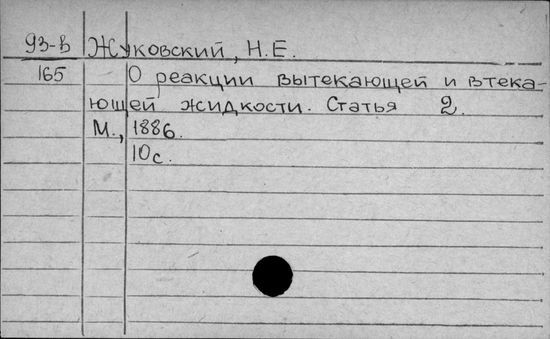 93-В Жуковский, Н.Е.
165 О реакции вытекающей и втека-
ющей жидкости. Статья 2.
М., 1886.
10с.